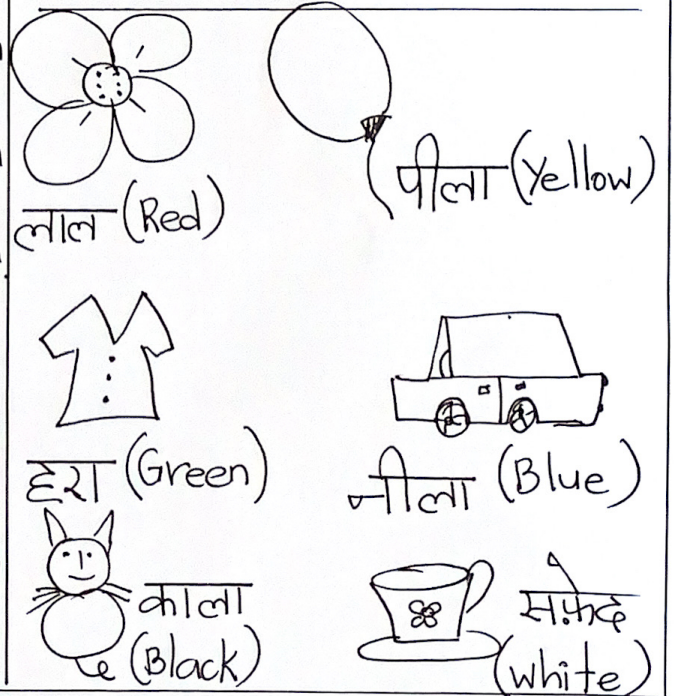 लाल (Red)
पीला (Yellow)
हरा (Green)
नीला (Blue)
काला
(Black)
सफ़ेद
(white)